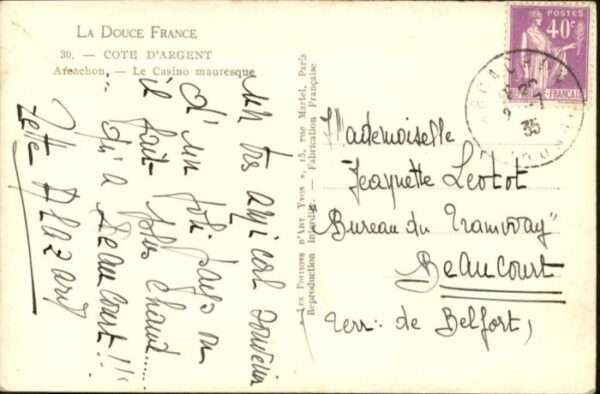 LA DOUCE FRANCE
30. — COTE D'ARGENT
Arcachon. — Le Casino mauresque
un très amical souvenir
d'un joli pays où
il fait plus chaud.....
qu'à Beaucourt!!!
Zette Alazard
« LES EDITIONS D'ART YVON », 15, rue Martel, Paris
Reproduction Interdite. — Fabrication Française
POSTES
40c
FRANÇAISE
ARCACHON
35
GIRONDE
Mademoiselle
Jeannette
Bureau du Tramway"
Beaucourt
Terr: de Belfort)